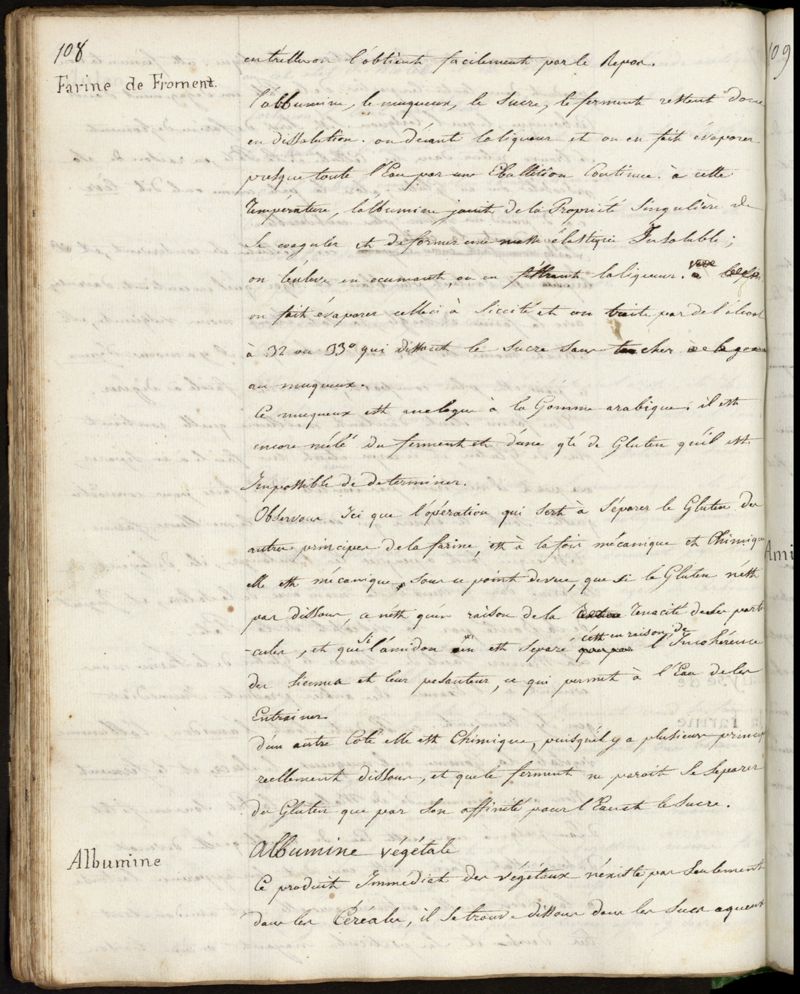 108
Farine de Froment.
on l'obtient facilement par le Repos.
l'albumine, le muqueux, le Sucre, le ferment restent donc
en dissolution. on décant la liqueur et on en fait évaporer
presque toute l'Eau par une Ebullition Continue. à cette
Température, l'albumine jouit de la Propriété Singulière de
Se coaguler et de former une Insoluble;
on l'enleve en écumant, ou en filtrant la liqueur.
on fait évaporer celleci à Siccité et on traite par de l'alcool
à 32 ou 33° qui dissout le Sucre sans toucher
au muqueux.
Ce muqueux est analogue à la Gomme arabique; il est
encore mêlé du ferment et d'une qté de Gluten qu'il est
Impossible de determiner.
Observons Ici que l'opération qui sert à Séparer le Gluten des
autres principes de la farine, est à la fois mécanique et Chimique
elle est mécanique, sous ce point de vue, que si le Gluten n'est
pas dissous, ce n'est qu'en raison de la Tenacité de ses parti
-cules, et que si l'amidon en est Separé c'est en raison de l'Incohérence
des Siennes et leur pesanteur, ce qui permet à l'Eau de les
Entrainer.
d'un autre Coté elle est Chimique, puisqu'il y a plusieurs princip
reellement dissous, et que le ferment ne parait Se Separer
du Gluten que par Son affinité pour l'Eau et le Sucre.
Albumine
Albumine végétale
Ce produit Immédiat des végétaux n'existe pas Seulement
dans les Céréales, il Se trouve dissous dans les Sucs aqueux
109
Ami